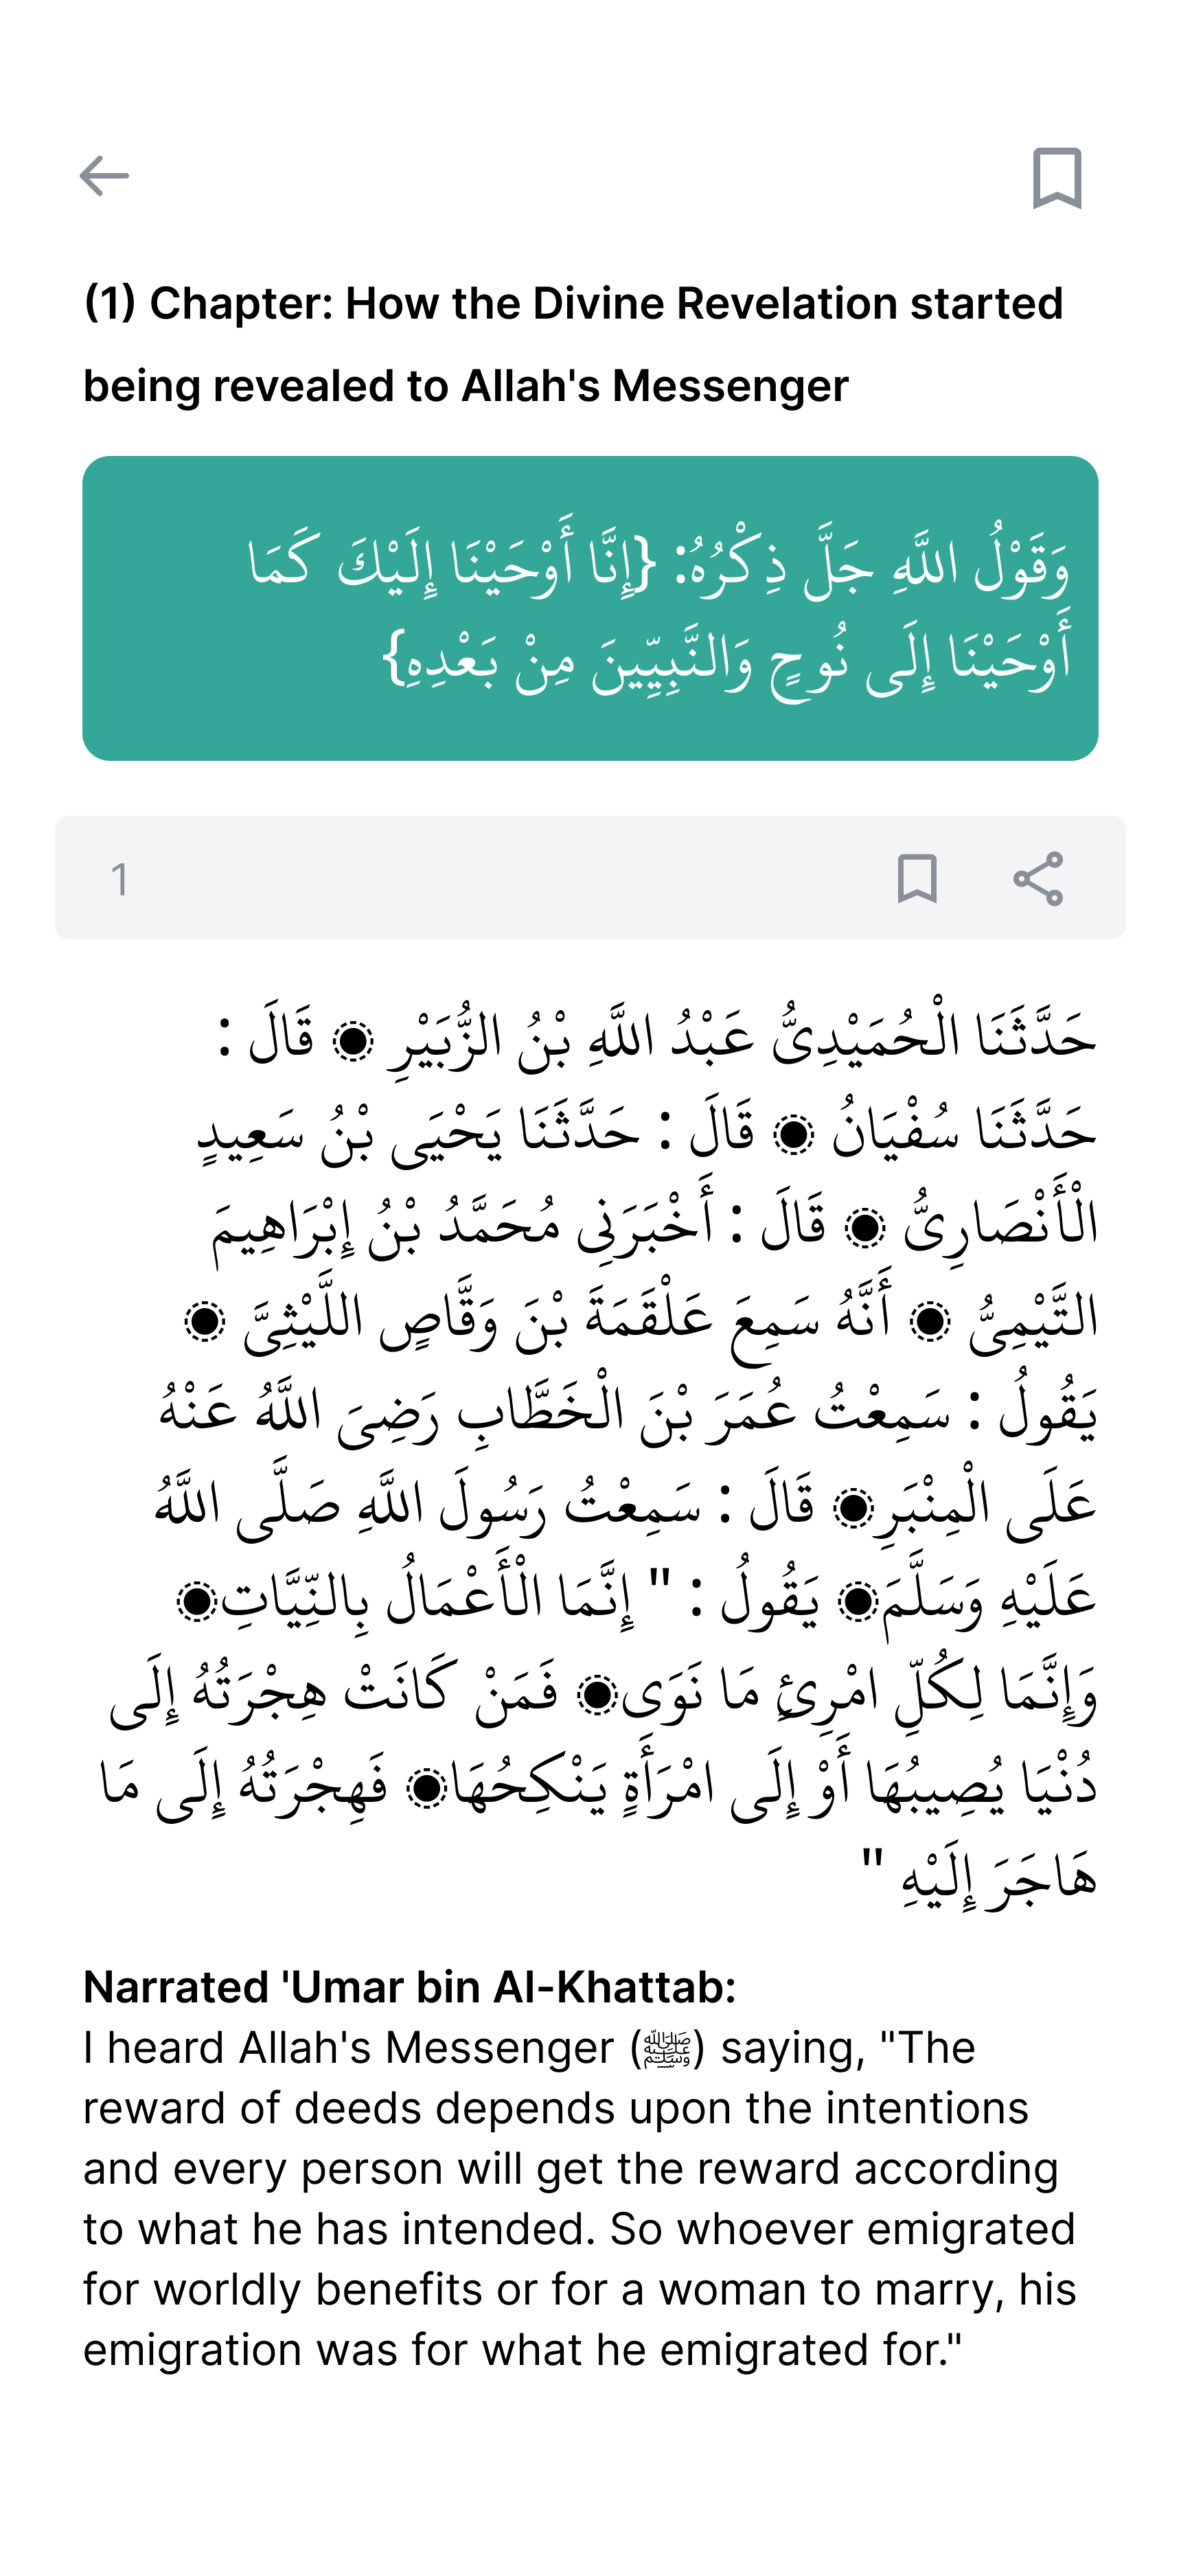 (1) Chapter: How the Divine Revelation started
being revealed to Allah's Messenger
وَقَوْلُ اللَّهِ جَلَّ ذِكْرُهُ: {إِنَّا أَوْحَيْنَا إِلَيْكَ كَمَا
أَوْحَيْنَا إِلَى نُوحٍ وَالنَّبِيِّينَ مِنْ بَعْدِهِ}
1
حَدَّثَنَا الْحُمَيْدِيُّ عَبْدُ اللَّهِ بْنُ الزُّبَيْرِ ۝ قَالَ :
حَدَّثَنَا سُفْيَانُ ۝ قَالَ : حَدَّثَنَا يَحْيَى بْنُ سَعِيدٍ
الْأَنْصَارِيُّ ۝ قَالَ : أَخْبَرَنِي مُحَمَّدُ بْنُ إِبْرَاهِيمَ
التَّيْمِيُّ ۝ أَنَّهُ سَمِعَ عَلْقَمَةَ بْنَ وَقَّاصٍ اللَّيْثِيَّ ۝
يَقُولُ : سَمِعْتُ عُمَرَ بْنَ الْخَطَّابِ رَضِيَ اللَّهُ عَنْهُ
عَلَى الْمِنْبَرِ۝ قَالَ : سَمِعْتُ رَسُولَ اللَّهِ صَلَّى اللَّهُ
عَلَيْهِ وَسَلَّمَ۝ يَقُولُ : " إِنَّمَا الْأَعْمَالُ بِالنِّيَّاتِ۝
وَإِنَّمَا لِكُلِّ امْرِئٍ مَا نَوَى۝ فَمَنْ كَانَتْ هِجْرَتُهُ إِلَى
دُنْيَا يُصِيبُهَا أَوْ إِلَى امْرَأَةٍ يَنْكِحُهَا۝ فَهِجْرَتُهُ إِلَى مَا
هَاجَرَ إِلَيْهِ "
Narrated 'Umar bin Al-Khattab:
I heard Allah's Messenger (ﷺ) saying, "The
reward of deeds depends upon the intentions
and every person will get the reward according
to what he has intended. So whoever emigrated
for worldly benefits or for a woman to marry, his
emigration was for what he emigrated for."